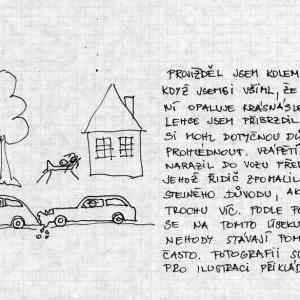 PROJÍŽDĚL JSEM KOLEM
KDYŽ JSEM SI VŠIML, ŽE
NÍ OPALUJE KRÁSNÁ
LEHCE JSEM PŘIBRZDIL
SI MOHL DOTYČNOU
PROHLÉDNOUT. VZÁPĚTÍ
NARAZIL DO VOZU PŘED
JEHOŽ ŘIDIČ ZPOMALIL
STEJNÉHO DŮVODU,
TROCHU VÍC. PODLE
SE NA TOMTO ÚSEKU
NEHODY STÁVAJÍ
ČASTO. FOTOGRAFII
PRO ILUSTRACI